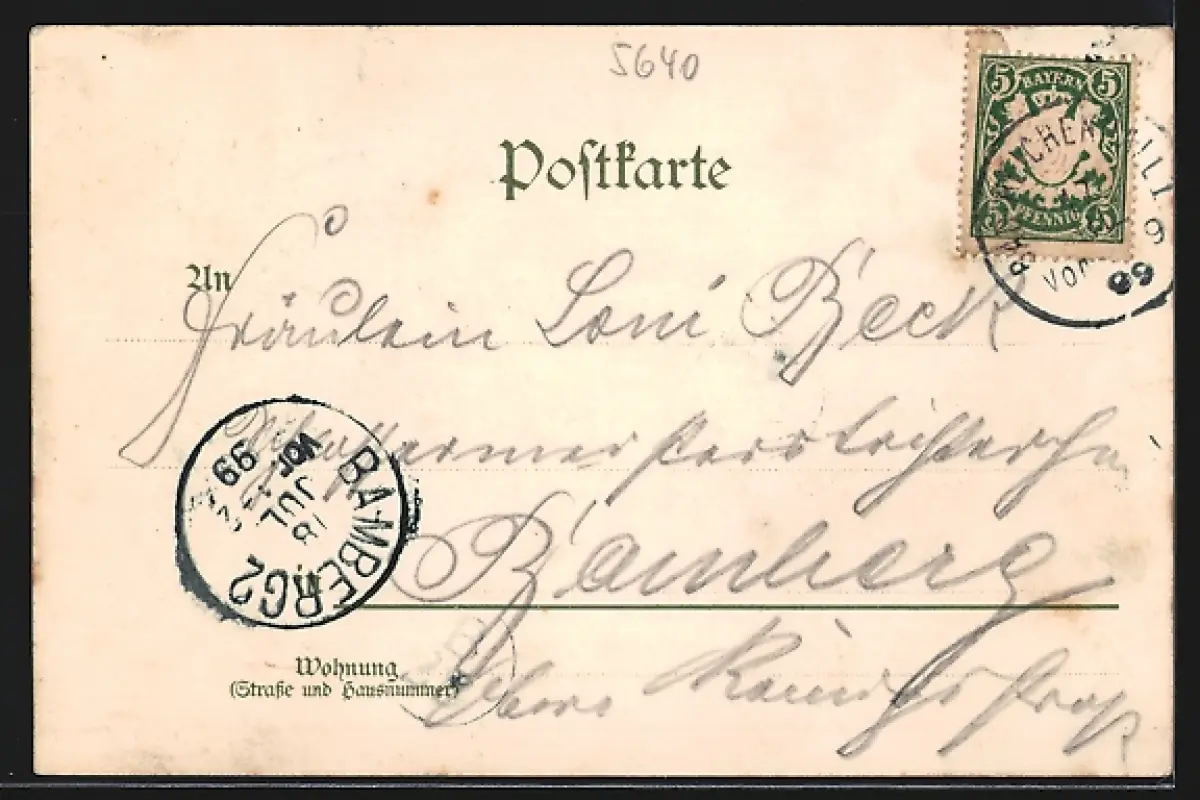 5640
Postkarte
5 BAYERN 5
5 PFENNIG 5
CHEN
VOR
99
An
Fräulein Loni Beck
Schaffermeisterstochter
BAMBERG 2
18 JUL
VOR
99
Bamberg
Wohnung
(Straße und Hausnummer)
Obere Königsstraß